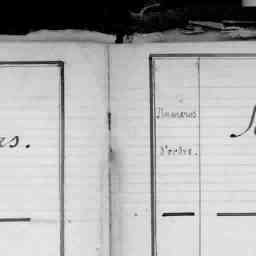 rs.
Numéros
d'ordre.